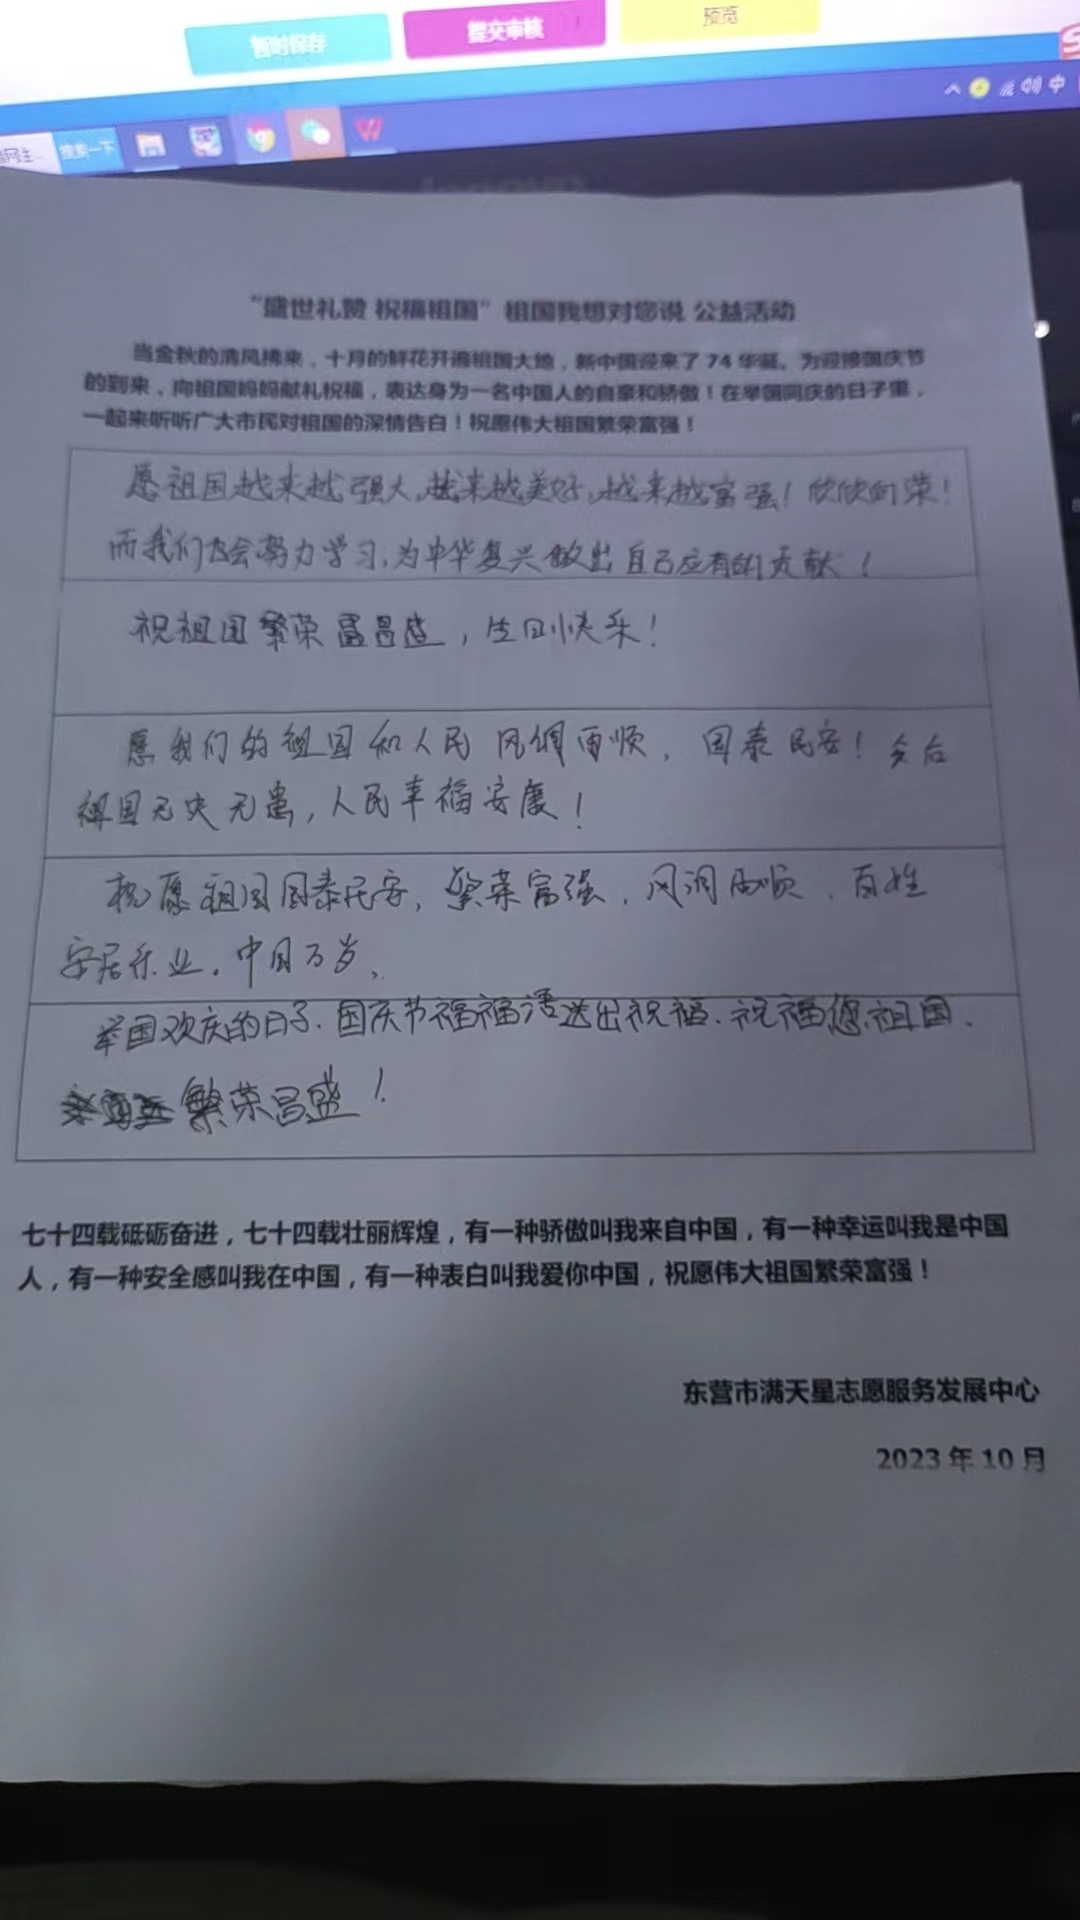 暂时保存
提交审核
预览
搜索一下
中
“盛世礼赞 祝福祖国”祖国我想对您说 公益活动
当金秋的清风拂来，十月的鲜花开遍祖国大地，新中国迎来了 74 华诞。为迎接国庆节
的到来，向祖国妈妈献礼祝福，表达身为一名中国人的自豪和骄傲！在举国同庆的日子里，
一起来听听广大市民对祖国的深情告白！祝愿伟大祖国繁荣富强！
愿祖国越来越强大,越来越美好,越来越富强！欣欣向荣！
而我们也会努力学习,为中华复兴做出自己应有的贡献！
祝祖国繁荣富昌盛，生日快乐！
愿我们的祖国和人民 风调雨顺，国泰民安！今后
祖国无灾无患，人民幸福安康！
祝愿祖国国泰民安，繁荣富强，风调雨顺，百姓
安居乐业。中国万岁。
举国欢庆的日子.国庆节福福语送出祝福.祝福您.祖国.
繁荣昌盛！
七十四载砥砺奋进，七十四载壮丽辉煌，有一种骄傲叫我来自中国，有一种幸运叫我是中国
人，有一种安全感叫我在中国，有一种表白叫我爱你中国，祝愿伟大祖国繁荣富强！
东营市满天星志愿服务发展中心
2023 年 10 月